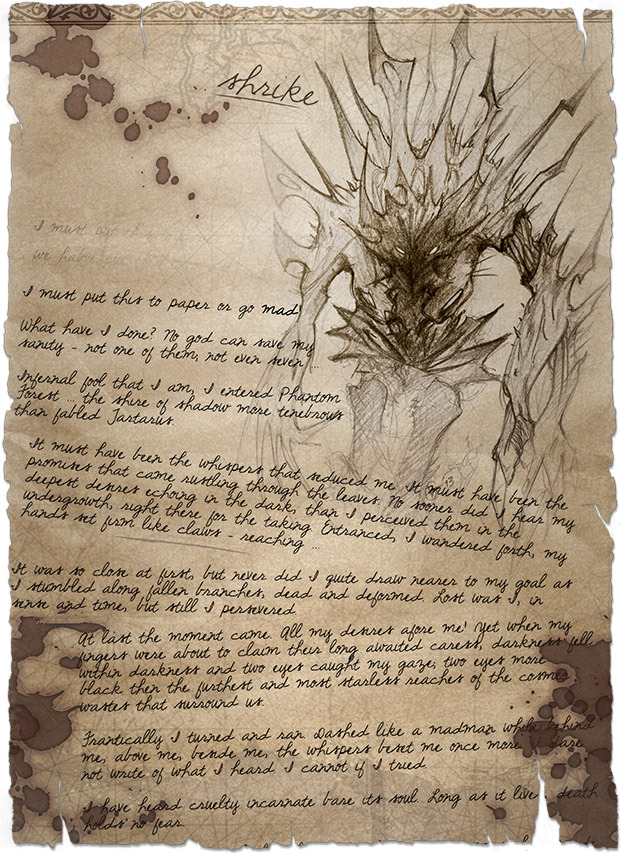 .. shrike
I must put this
we have
I must put this to paper or go mad!
What have I done? No god can save my
sanity - not one of them, not even seven ...
Infernal fool that I am, I entered Phantom
Forest ... the shire of shadow more tenebrous
than fabled Tartarus.
It must have been the whispers that seduced me. It must have been the
promises that came rustling through the leaves. No sooner did I hear my
deepest desires echoing in the dark, than I perceived them in the
undergrowth, right there for the taking. Entranced, I wandered forth, my
hands set firm like claws - reaching ...
It was so close at first, but never did I quite draw nearer to my goal as
I stumbled along fallen branches, dead and deformed. Lost was I, in
sense and time, but still I persevered.
At last the moment came. All my desires afore me! Yet when my
fingers were about to claim their long awaited caress, darkness fell
within darkness and two eyes caught my gaze, two eyes more
black then the furthest and most starless reaches of the cosmic
wastes that surround us.
Frantically I turned and ran. Dashed like a madman while behind
me, above me, beside me, the whispers beset me once more. I dare
not write of what I heard. I cannot if I tried.
I have heard cruelty incarnate bare its soul. Long as it lives, death
holds no fear.